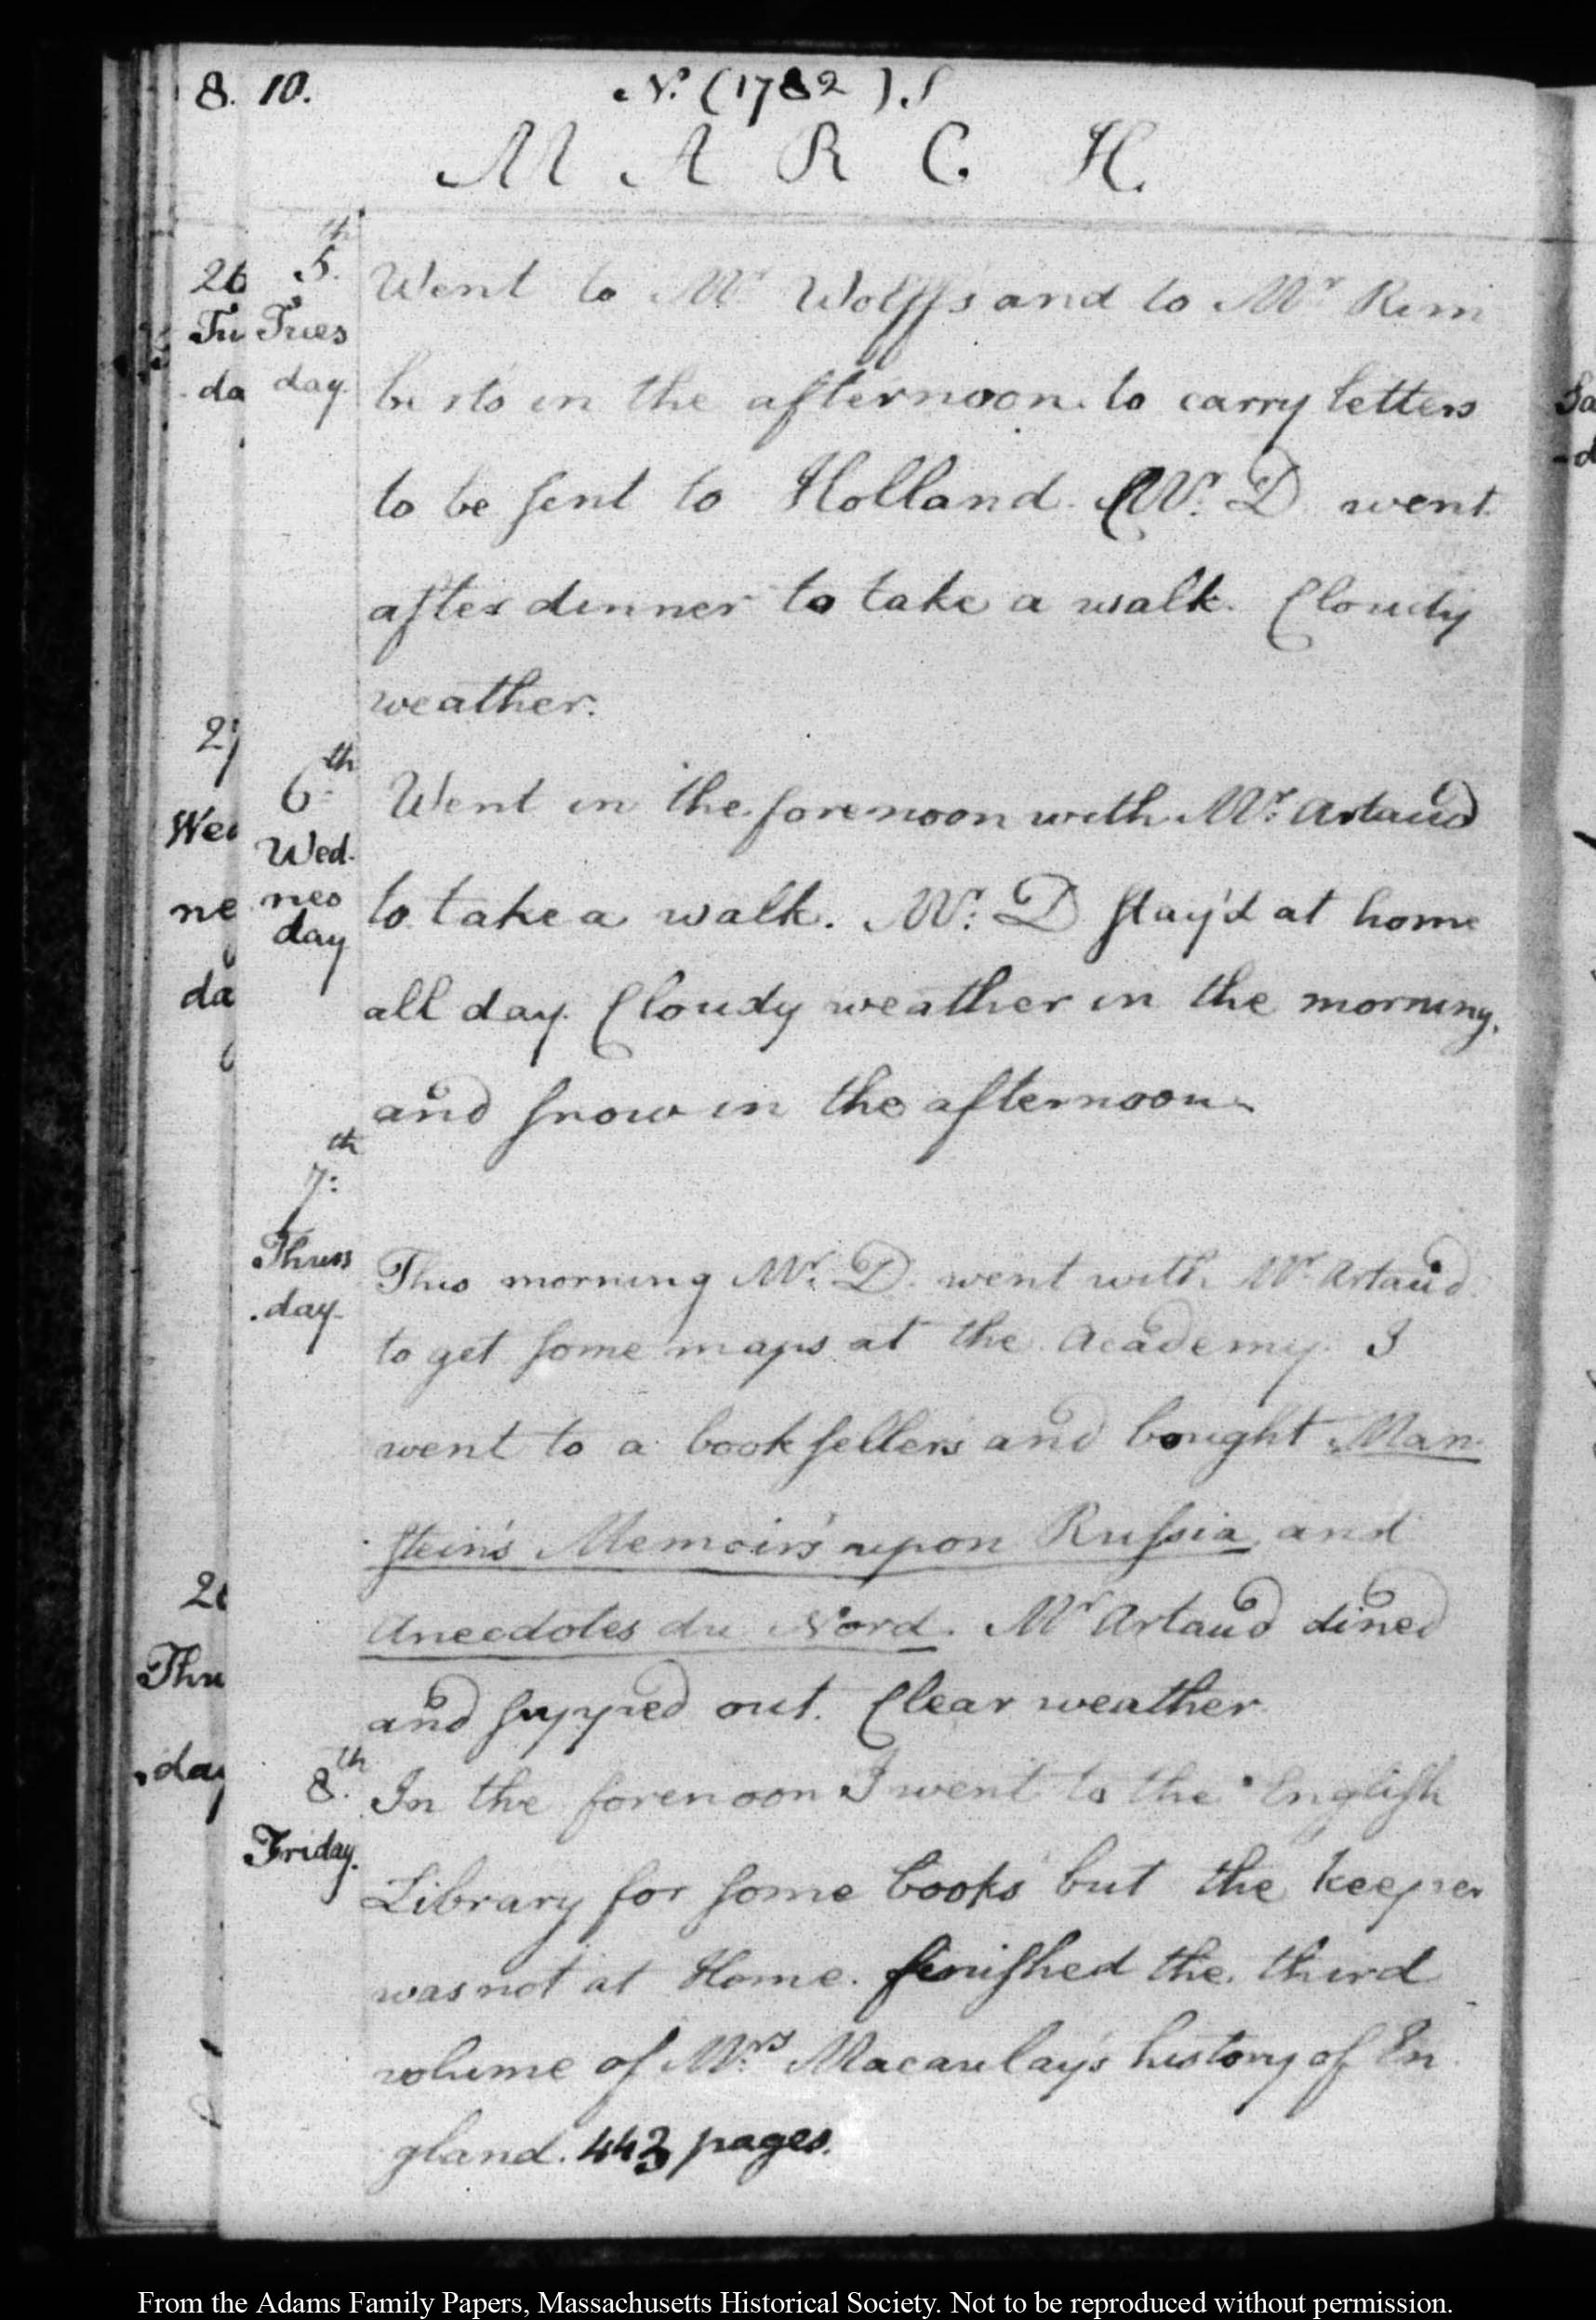 8. 10. N.º (1782). S
M A R C. H.
5.th Tues day
Went to Mr Wolff's and to Mr Rim
berts in the afternoon to carry letters
to be sent to Holland. Mr. D went
after dinner to take a walk. Cloudy
weather.
6th Wed. nes day
Went in the forenoon with Mr. Artaud
to take a walk. Mr. D stay'd at home
all day. Cloudy weather in the morning,
and snow in the afternoon
7th: Thurs day
This morning Mr. D. went with Mr. Artaud
to get some maps at the Academy. I
went to a book sellers and bought Man
steins Memoirs upon Russia and
Anecdotes du Nord. Mr Artaud dined
and supped out. Clear weather
8.th Friday.
In the forenoon I went to the English
Library for some books but the keeper
was not at Home. finished the third
volume of Mrs Macaulay's history of En
gland. 443 pages.
26
Tu
da
27
Wed
ne
da
Thu
day
From the Adams Family Papers, Massachusetts Historical Society. Not to be reproduced without permission.